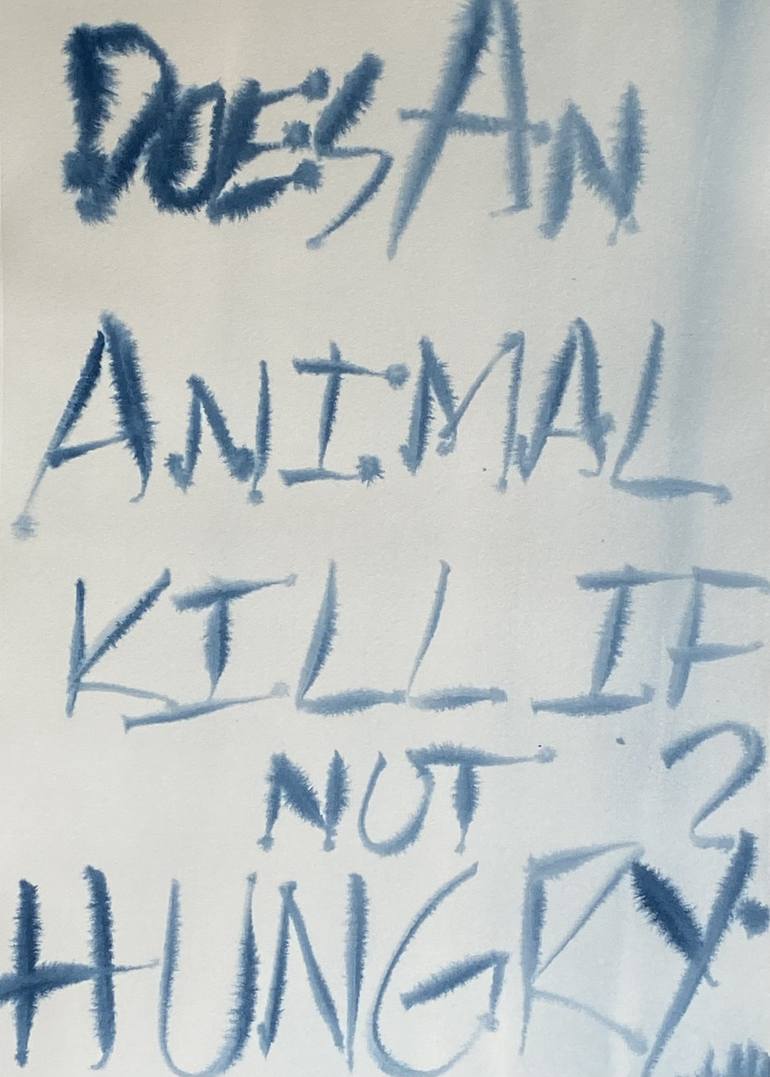 DOES AN
ANIMAL
KILL IF
NOT ?
HUNGRY